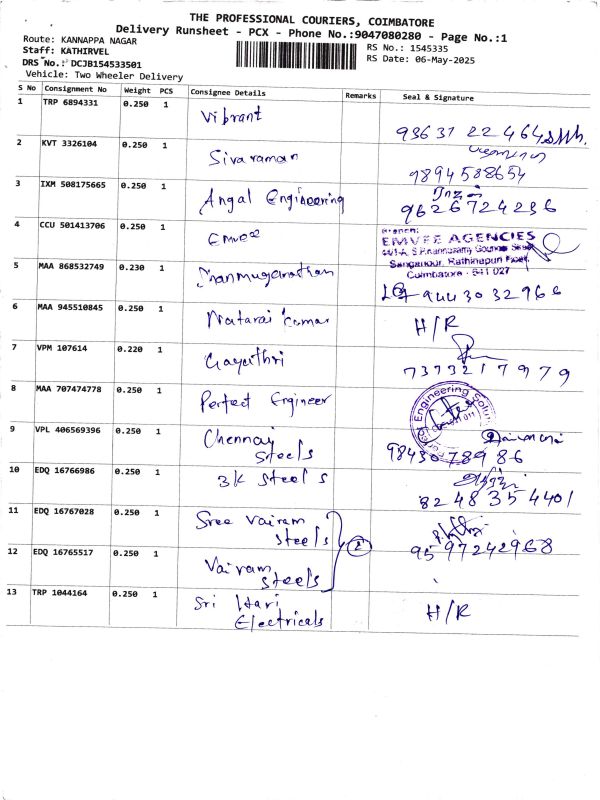 THE PROFESSIONAL COURIERS, COIMBATORE
Delivery Runsheet - PCX - Phone No.:9047080280 - Page No.:1
Route: KANNAPPA NAGAR
Staff: KATHIRVEL
DRS No.: DCJB154533501
Vehicle: Two Wheeler Delivery
RS No.: 1545335
RS Date: 06-May-2025
S No Consignment No Weight PCS Consignee Details Remarks Seal & Signature
1 TRP 6894331 0.250 1 Vibrant 93631 22464
2 KVT 3326104 0.250 1 Sivaraman 9894588654
3 IXM 508175665 0.250 1 Angal Engineering 9626724236
4 CCU 501413706 0.250 1 Emvee
EMVEE AGENCIES
Coimbatore - 641 027
5 MAA 868532749 0.230 1 Shanmuganathan 9443032966
6 MAA 945510845 0.250 1 Natarai Kumar H/R
7 VPM 107614 0.220 1 Gayathri 7373217979
8 MAA 707474778 0.250 1 Perfect Engineer
Perfect Engineering Solutions
9 VPL 406569396 0.250 1 Chennai Steels 9843078986
10 EDQ 16766986 0.250 1 3K Steels 8248354401
11 EDQ 16767028 0.250 1 Sree Vairam Steels 2 9597242968
12 EDQ 16765517 0.250 1 Vairam Steels
13 TRP 1044164 0.250 1 Sri Hari Electricals H/R